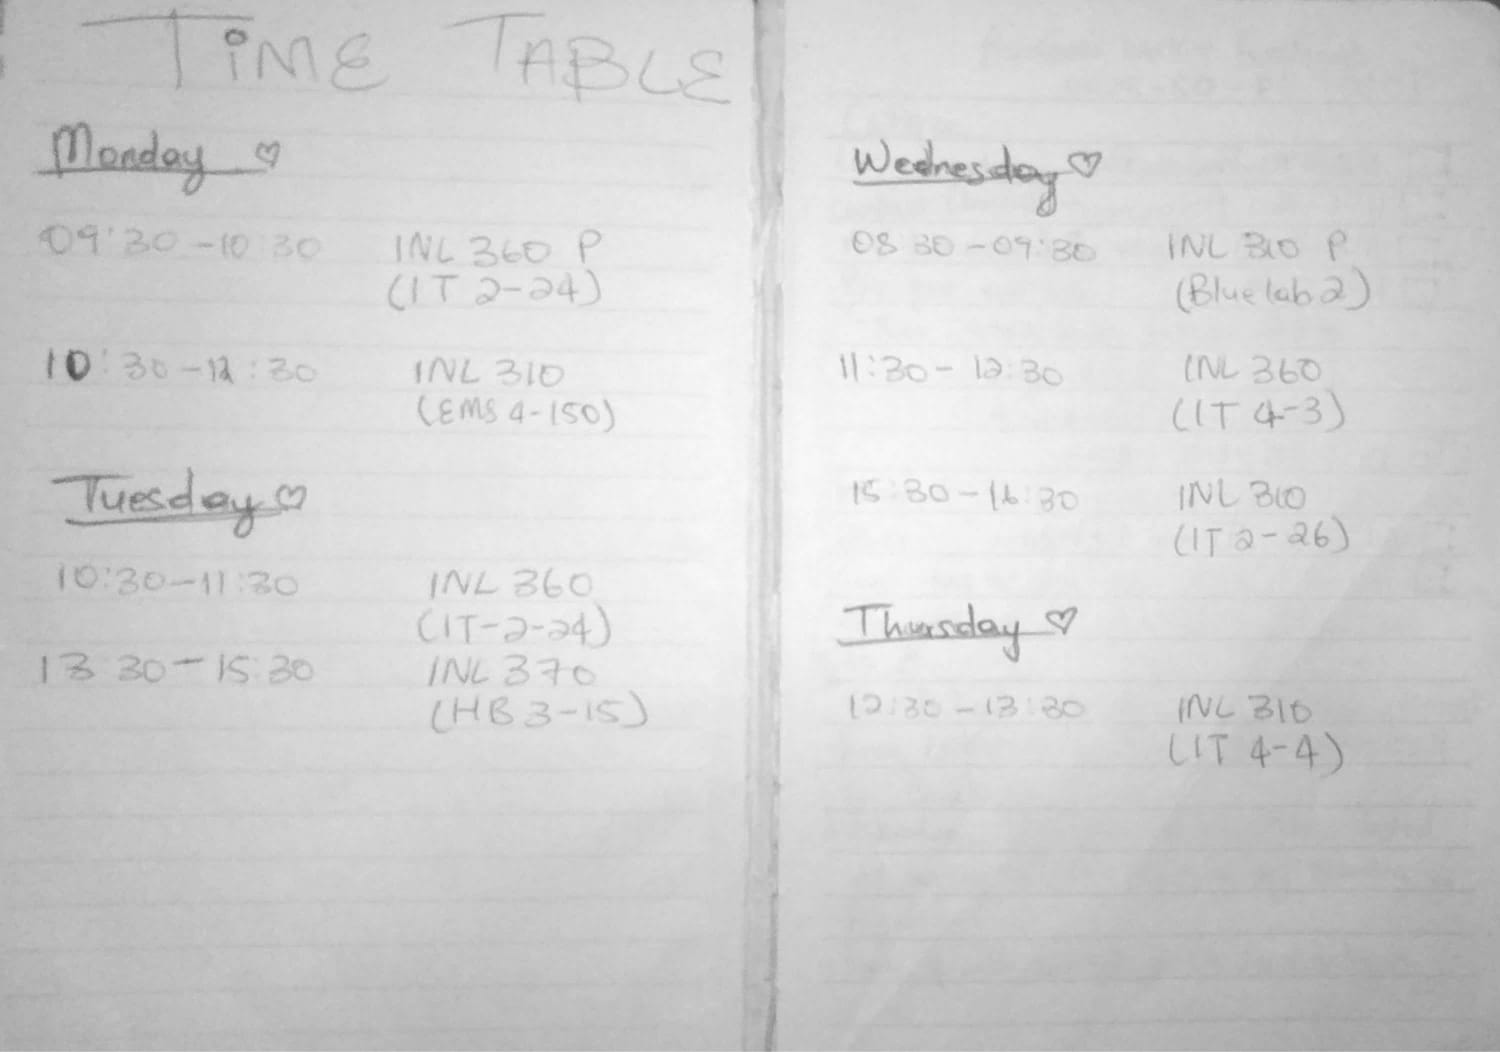 TiME TABLE
Monday ♡
09:30-10:30 INL 360 P
(IT 2-24)
10:30-12:30 INL 310
(EMS 4-150)
Tuesday ♡
10:30-11:30 INL 360
(IT-2-24)
13:30-15:30 INL 370
(HB 3-15)
Wednesday ♡
08:30-09:30 INL 310 P
(Blue lab 2)
11:30-12:30 INL 360
(IT 4-3)
15:30-16:30 INL 310
(IT 2-26)
Thursday ♡
12:30-13:30 INL 310
(IT 4-4)